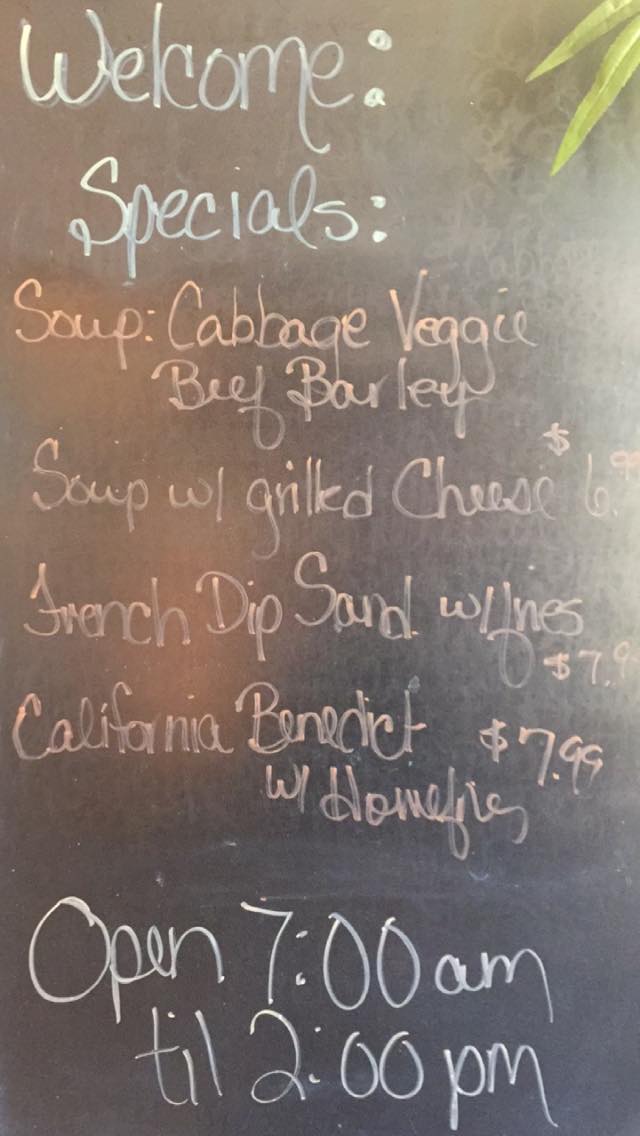 Welcome:
Specials:
Soup: Cabbage Veggie
Beef Barley
Soup w/ grilled Cheese $6.99
French Dip Sand. w/fries
$7.9
California Benedict $7.99
w/ Homefries
Open 7:00 am
til 2:00 pm